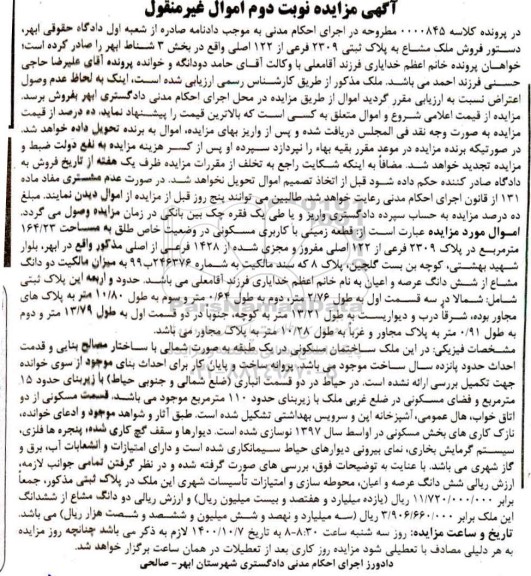 آگهی مزایده نوبت دوم اموال غیرمنقول
در پرونده کلاسه ۰۰۰۰۸۴۵ مطروحه در اجرای احکام مدنی به موجب دادنامه صادره از شعبه اول دادگاه حقوقی ابهر،
دستور فروش ملک مشاع به پلاک ثبتی ۲۳۰۹ فرعی از ۱۲۲ اصلی واقع در بخش ۳ شناط ابهر را صادر کرده است؛
خواهان پرونده خانم اعظم خدایاری فرزند آقامعلی با وکالت آقای حامد دودانگه و خوانده پرونده آقای علیرضا حاجی
حسنی فرزند احمد می باشد. ملک مذکور از طریق کارشناس رسمی ارزیابی شده است، اینک به لحاظ عدم وصول
اعتراض نسبت به ارزیابی مقرر گردید اموال از طریق مزایده در محل اجرای احکام مدنی دادگستری ابهر بفروش برسد.
مزایده از قیمت اعلامی شروع و اموال متعلق به کسی است که بالاترین قیمت را پیشنهاد نماید، ده درصد از قیمت
مزایده به صورت وجه نقد فی المجلس دریافت شده و پس از واریز بهای مزایده، اموال به برنده تحویل داده خواهد شد.
در صورتیکه برنده مزایده در موعد مقرر بقیه بهاء را نپردازد سپرده او پس از کسر هزینه مزایده به نفع دولت ضبط و
مزایده تجدید خواهد شد. مضافاً به اینکه شکایت راجع به تخلف از مقررات مزایده ظرف یک هفته از تاریخ فروش به
دادگاه صادر کننده حکم داده شود قبل از اتخاذ تصمیم اموال تحویل نخواهد شد. در صورت عدم مشتری مفاد ماده
۱۳۱ از قانون اجرای احکام مدنی رعایت خواهد شد. طالبین می توانند پنج روز قبل از مزایده از اموال دیدن نمایند. مبلغ
ده درصد مزایده به حساب سپرده دادگستری واریز و یا طی یک فقره چک بین بانکی در زمان مزایده وصول می گردد.
اموال مورد مزایده عبارت است از: قطعه زمینی با کاربری مسکونی در وضعیت خاص طلق به مساحت ۱۶۴/۲۳
مترمربع در پلاک ۲۳۰۹ فرعی از ۱۲۲ اصلی مفروز و مجزی شده از ۱۴۲۸ فرعی از اصلی مذکور واقع در ابهر، بلوار
شهید بهشتی، کوچه بن بست گلچین، پلاک ۸ که سند مالکیت به شماره ۲۴۶۳۷۶ ب ۹۹ به میزان مالکیت دو دانگ
مشاع از شش دانگ عرصه و اعیان به نام خانم اعظم خدایاری فرزند آقامعلی می باشد. حدود و اربعه این پلاک ثبتی
شامل: شمالا در سه قسمت اول به طول ۲/۷۶ متر، دوم به طول ۰/۶۴ متر و سوم به طول ۱۰/۸۰ متر به پلاک های
مجاور بوده، شرقاً درب و دیواریست به طول ۱۳/۲۱ متر به کوچه، جنوبا در دو قسمت اول به طول ۱۳/۷۹ متر و دوم
به طول ۰/۹۱ متر به پلاک مجاور و غرباً به طول ۱۰/۳۸ متر به پلاک مجاور می باشد.
مشخصات فیزیکی: در این ملک ساختمان مسکونی در یک طبقه به صورت شمالی با ساختار مصالح بنایی و قدمت
احداث حدود پانزده سال ساخت موجود می باشد. پروانه ساخت و پایان کار برای احداث بنای موجود از سوی خوانده
جهت تکمیل بررسی ارائه نشده است. در حیاط در دو قسمت انباری (ضلع شمالی و جنوبی حیاط) با زیربنای حدود ۱۵
مترمربع و فضای مسکونی در ضلع غربی ملک با زیربنای حدود ۱۱۰ مترمربع موجود می باشد. قسمت مسکونی از دو
اتاق خواب، هال عمومی، آشپزخانه اپن و سرویس بهداشتی تشکیل شده است. طبق آثار و شواهد موجود و ادعای خوانده،
نازک کاری های بخش مسکونی در اواسط سال ۱۳۹۷ نوسازی شده است. دیوارها و سقف گچ کاری شده، پنجره ها فلزی،
سیستم گرمایش بخاری، نمای بیرونی دیوارهای حیاط سیمانکاری شده است و دارای امتیازات و انشعابات آب، برق و
گاز شهری می باشد. با عنایت به توضیحات فوق، بررسی های صورت گرفته شده و در نظر گرفتن تمامی جوانب لازمه،
ارزش ریالی شش دانگ عرصه و اعیان، محوطه سازی و امتیازات تأسیسات شهری این ملک در پلاک ثبتی مذکور، جمعاً
برابر ۱۱/۷۲۰/۰۰۰/۰۰۰ ریال (یازده میلیارد و هفتصد و بیست میلیون ریال) و ارزش ریالی دو دانگ مشاع از ششدانگ
این ملک برابر ۳/۹۰۶/۶۶۰/۰۰۰ ریال (سه میلیارد و نهصد و شش میلیون و ششصد و شصت هزار ریال) می باشد.
تاریخ و ساعت مزایده: روز سه شنبه ساعت ۸:۳۰-۸ به تاریخ ۱۴۰۰/۱۰/۷ لازم به ذکر می باشد چنانچه روز مزایده
به هر دلیلی مصادف با تعطیلی شود مزایده روز کاری بعد از تعطیلات در همان ساعت برگزار خواهد شد.
دادورز اجرای احکام مدنی دادگستری شهرستان ابهر- صالحی